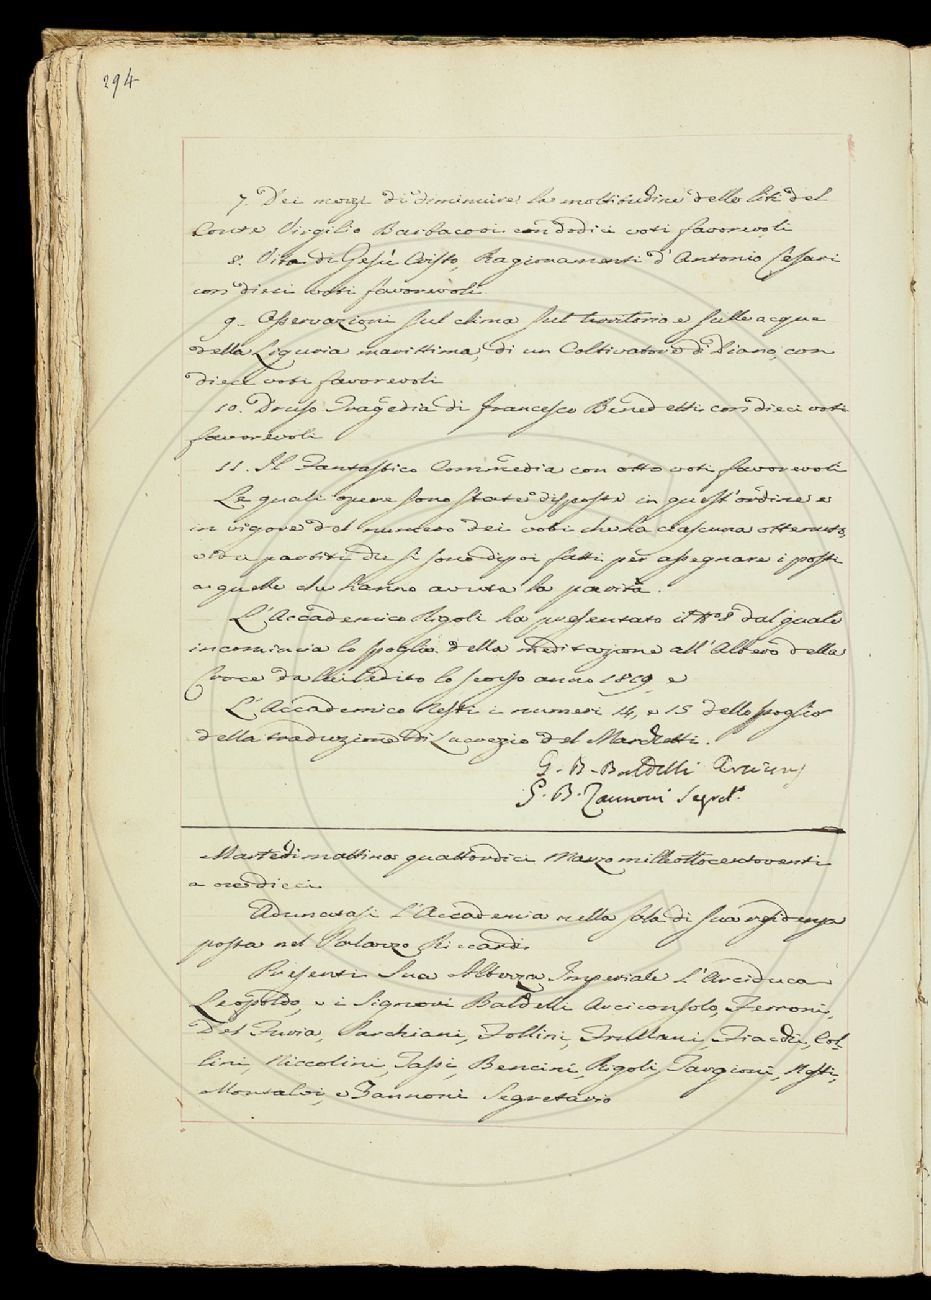 294
7. Dei mezzi di diminuire la moltitudine delle liti del
Conte Virgilio Barbacovi con dodici voti favorevoli
8. Vita di Gesù Cristo, Ragionamenti d'Antonio Cesari
con dieci voti favorevoli
9. Osservazioni sul clima sul territorio e sulle acque
della Liguria marittima, di un Coltivatore di Diano, con
dieci voti favorevoli
10. Druso Tragedia di Francesco Benedetti con dieci voti
favorevoli
11. Il Fantastico Commedia con otto voti favorevoli
Le quali opere sono state disposte in quest'ordine e
in vigore del numero dei voti che ha ciascuna ottenuto,
e da partiti che si sono dipoi fatti per assegnare i posti
a quelle che hanno avuta la parità.
L'Accademico Rigoli ha presentato il No. 8 dal quale
incomincia lo spoglio della meditazione all'Albero della
Croce da lui edito lo scorso anno 1819, e
L'Accademico Nesti i numeri 14, e 15 dello spoglio
della traduzione di Lucrezio del Marchetti.
G. B. Baldelli
G. B. Zannoni Segret.o
Martedì mattina quattordici Marzo milleottocentoventi
a ore dieci
Adunatasi l'Accademia nella sala di sua residenza
posta nel Palazzo Riccardi.
Presenti Sua Altezza Imperiale l'Arciduca
Leopoldo, e i Signori Baldelli Arciconsolo, Ferroni,
Del Furia, Sarchiani, Follini, Frullani, Fiacchi, Col-
lini, Niccolini, Tassi, Bencini, Rigoli, Targioni, Nesti,
Montalvi, e Zannoni Segretario